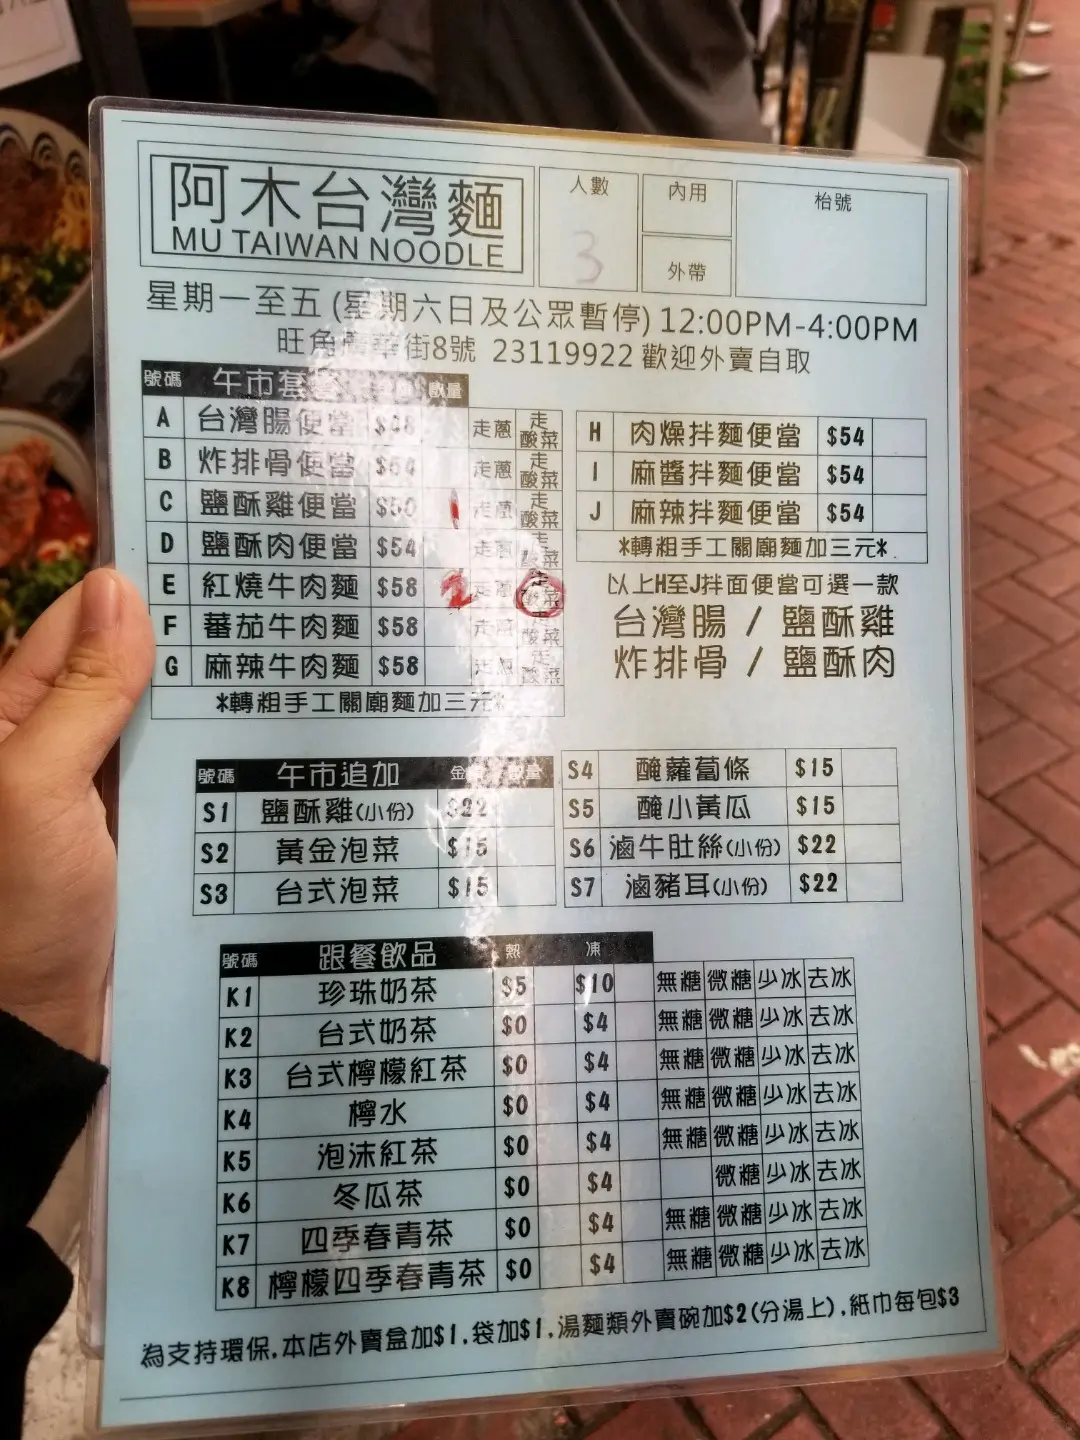 阿木台灣麵
MU TAIWAN NOODLE
人數 3
內用
外帶
枱號
星期一至五(星期六日及公眾暫停)12:00PM-4:00PM
旺角 華街8號 23119922 歡迎外賣自取
號碼 午市套 數量
A 台灣腸便當 $48 走蔥 走酸菜
B 炸排骨便當 $54 走蔥 走酸菜
C 鹽酥雞便當 $50 1 走蔥 走酸菜
D 鹽酥肉便當 $54 走蔥 走酸菜
E 紅燒牛肉麵 $58 2 走蔥 走酸菜
F 蕃茄牛肉麵 $58 走蔥 走酸菜
G 麻辣牛肉麵 $58 走蔥 走酸菜
*轉粗手工關廟麵加三元*
H 肉燥拌麵便當 $54
I 麻醬拌麵便當 $54
J 麻辣拌麵便當 $54
*轉粗手工關廟麵加三元*
以上H至J拌面便當可選一款
台灣腸 / 鹽酥雞
炸排骨 / 鹽酥肉
號碼 午市追加 金 數量
S1 鹽酥雞(小份) $22
S2 黃金泡菜 $15
S3 台式泡菜 $15
S4 醃蘿蔔條 $15
S5 醃小黃瓜 $15
S6 滷牛肚絲(小份) $22
S7 滷豬耳(小份) $22
號碼 跟餐飲品 熱 凍
K1 珍珠奶茶 $5 $10 無糖 微糖 少冰 去冰
K2 台式奶茶 $0 $4 無糖 微糖 少冰 去冰
K3 台式檸檬紅茶 $0 $4 無糖 微糖 少冰 去冰
K4 檸水 $0 $4 無糖 微糖 少冰 去冰
K5 泡沫紅茶 $0 $4 無糖 微糖 少冰 去冰
K6 冬瓜茶 $0 $4 微糖 少冰 去冰
K7 四季春青茶 $0 $4 無糖 微糖 少冰 去冰
K8 檸檬四季春青茶 $0 $4 無糖 微糖 少冰 去冰
為支持環保,本店外賣盒加$1,袋加$1,湯麵類外賣碗加$2(分湯上),紙巾每包$3